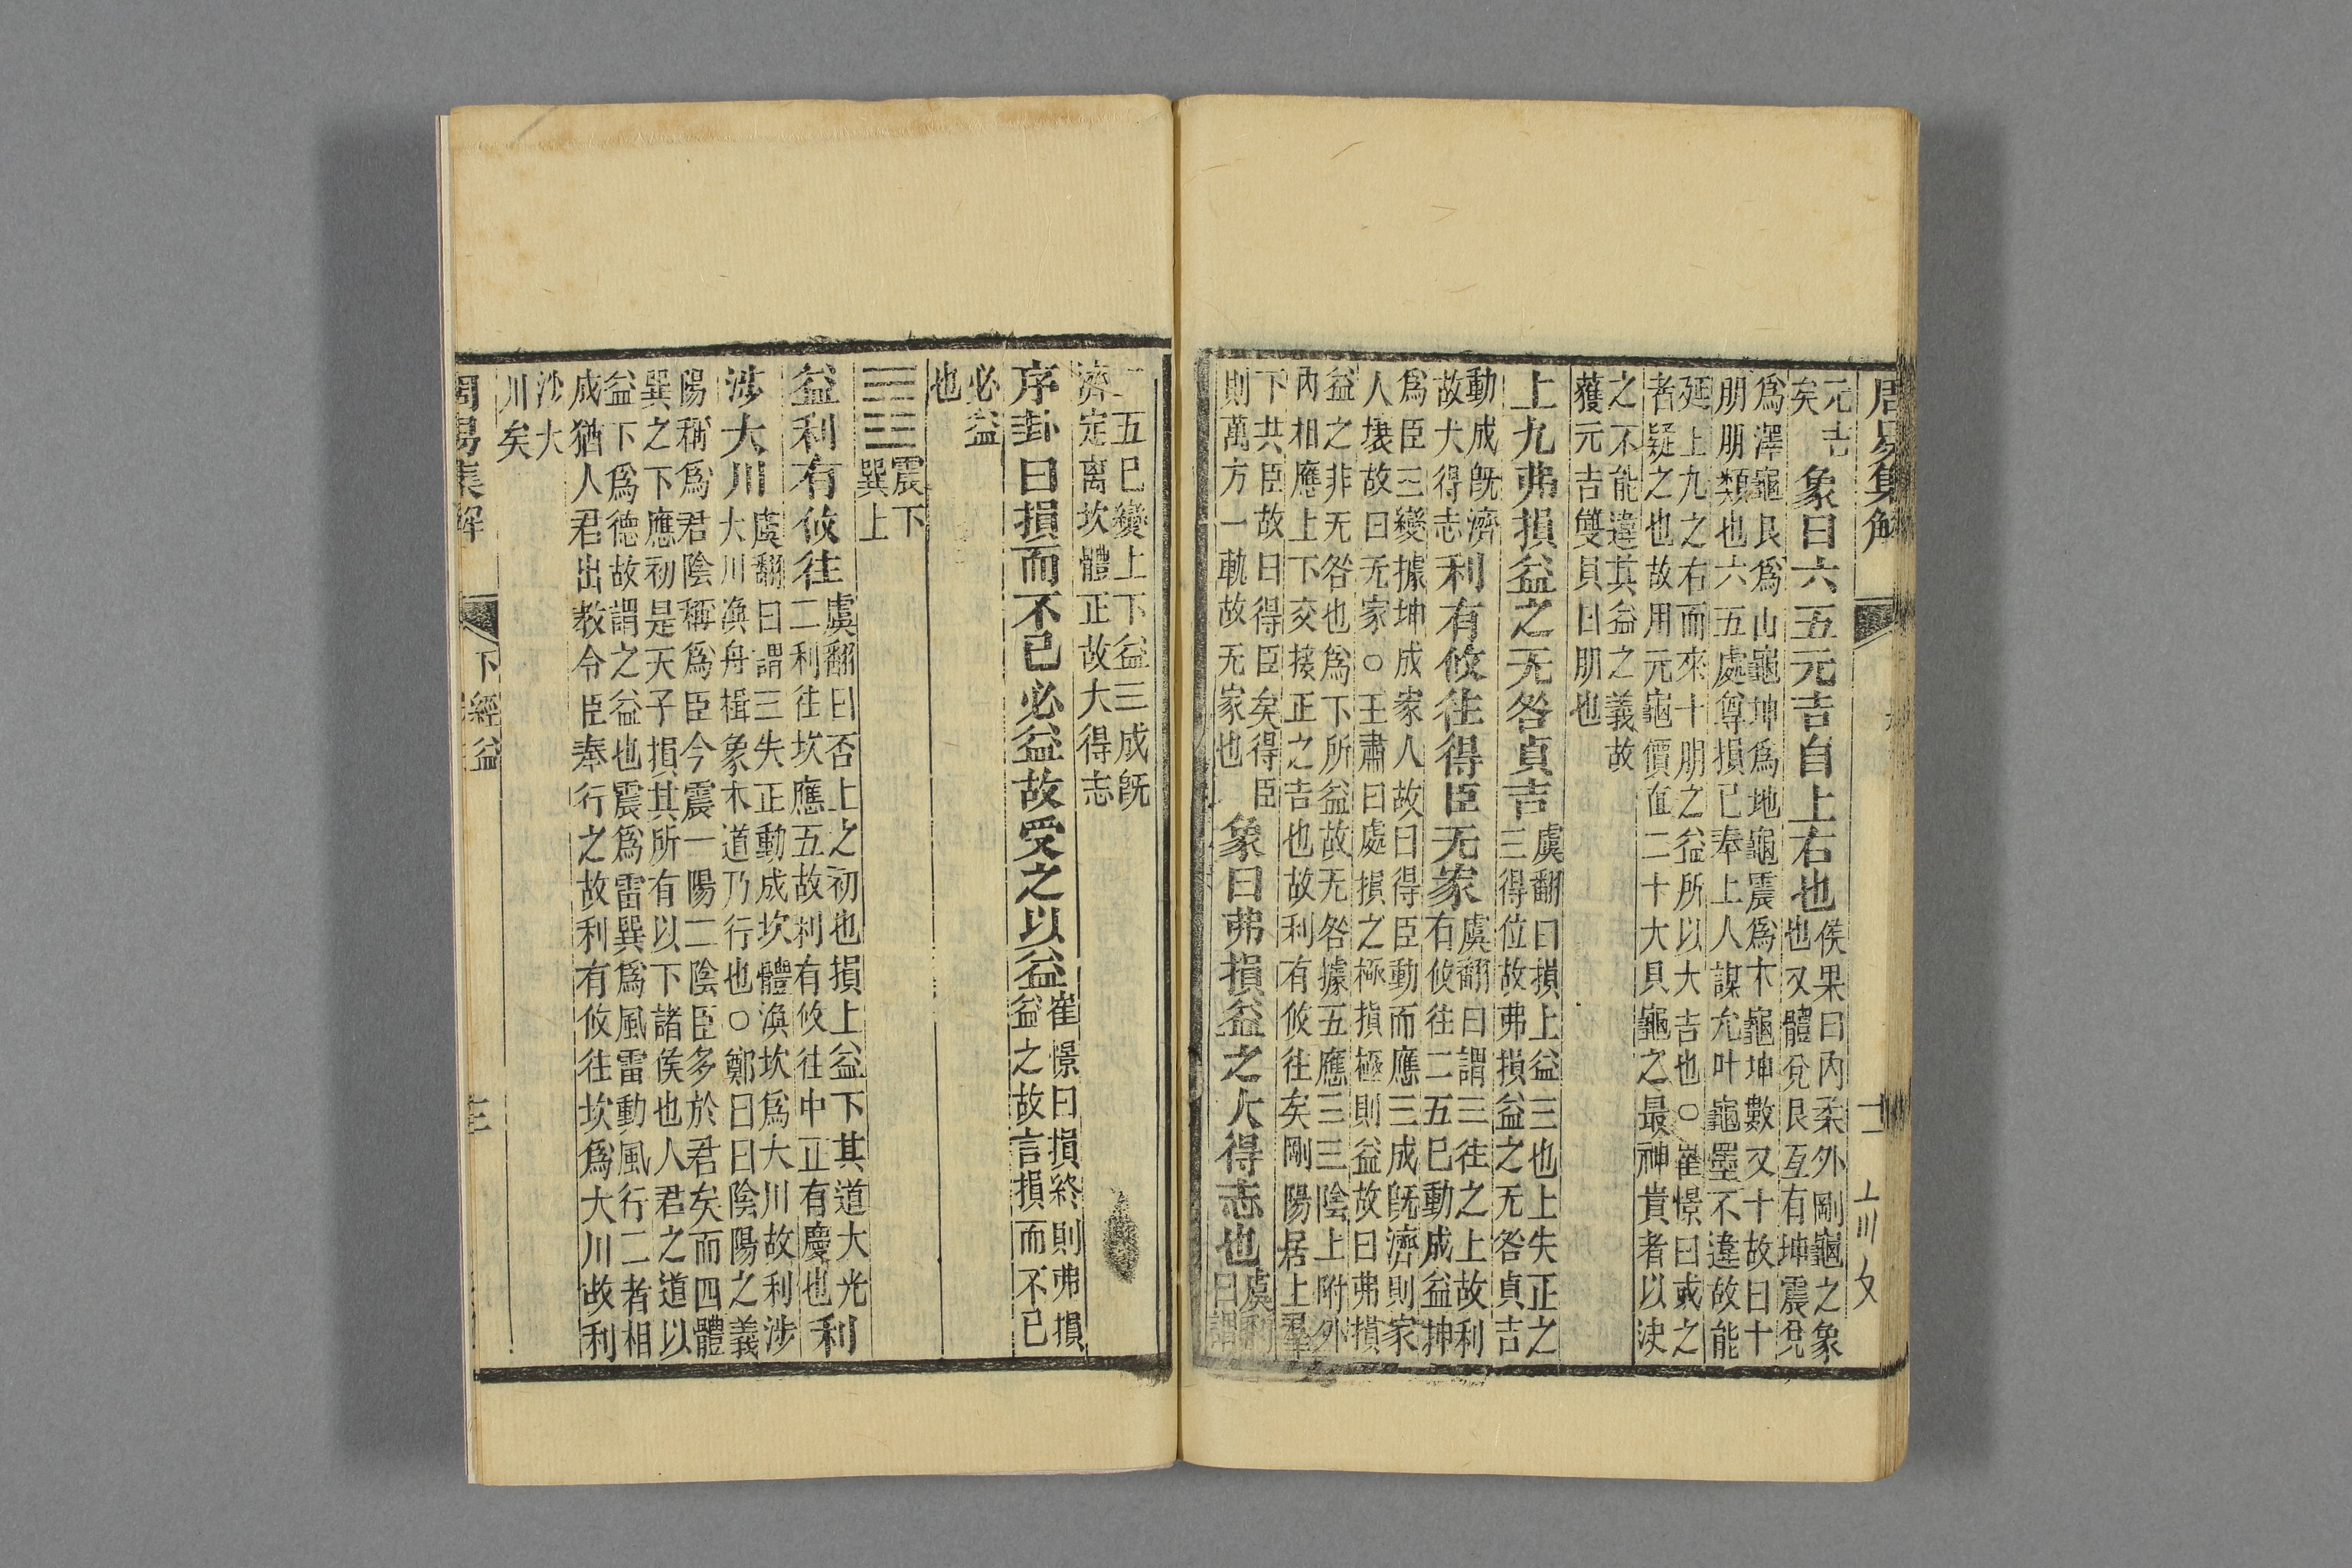 周易集解
元吉
矣
象曰六五元吉自上右也
侯果曰內柔外剛龜之象
也又體兌艮互有坤震兌
爲澤龜艮爲山龜坤爲地龜震爲木龜坤數又十故曰十
朋朋類也六五處尊損己奉上人謀允叶龜墨不違故能
延上九之右而來十朋之益所以大吉也○崔憬曰或之
者疑之也故用元龜價直二十大貝龜之最神貴者以決
之不能違其益之義故
獲元吉雙貝曰朋也
上九弗損益之无咎貞吉
虞翻曰損上益三也上失正之
三得位故弗損益之无咎貞吉
動成旣濟
故大得志
利有攸往得臣无家
虞翻曰謂三往之上故利
有攸往二五已動成益坤
爲臣三變據坤成家人故曰得臣動而應三成旣濟則家
人壞故曰无家○王肅曰處損之極損極則益故曰弗損
益之非无咎也爲下所益故无咎據五應三三陰上附外
內相應上下交接正之吉也故利有攸往矣剛陽居上羣
下共臣故曰得臣矣得臣
則萬方一軌故无家也
象曰弗損益之大得志也
虞翻
曰謂
二五已變上下益三成旣
濟定离坎體正故大得志
序卦曰損而不已必益故受之以益
崔憬曰損終則弗損
益之故言損而不已
必益
也
震下
巽上
益利有攸往
虞翻曰否上之初也損上益下其道大光
二利往坎應五故利有攸往中正有慶也
利
涉大川
虞翻曰謂三失正動成坎體渙坎爲大川故利涉
大川渙舟楫象木道乃行也○鄭曰曰陰陽之義
陽稱爲君陰稱爲臣今震一陽二陰臣多於君矣而四體
巽之下應初是天子損其所有以下諸侯也人君之道以
益下爲德故謂之益也震爲雷巽爲風雷動風行二者相
成猶人君出敎令臣奉行之故利有攸往坎爲大川故利
涉大
川矣
周易集解
下經益